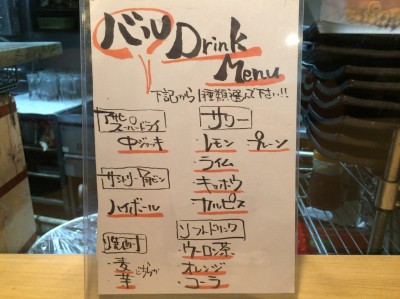 バル Drink Menu
下記から1種類選んで下さい!!
アサヒ
スーパードライ
中ジョッキ
サントリー角ビン
ハイボール
焼酎
麦
芋
どちらか
サワー
レモン プレーン
ライム
キョホウ
カルピス
ソフトドリンク
ウーロン茶
オレンジ
コーラ